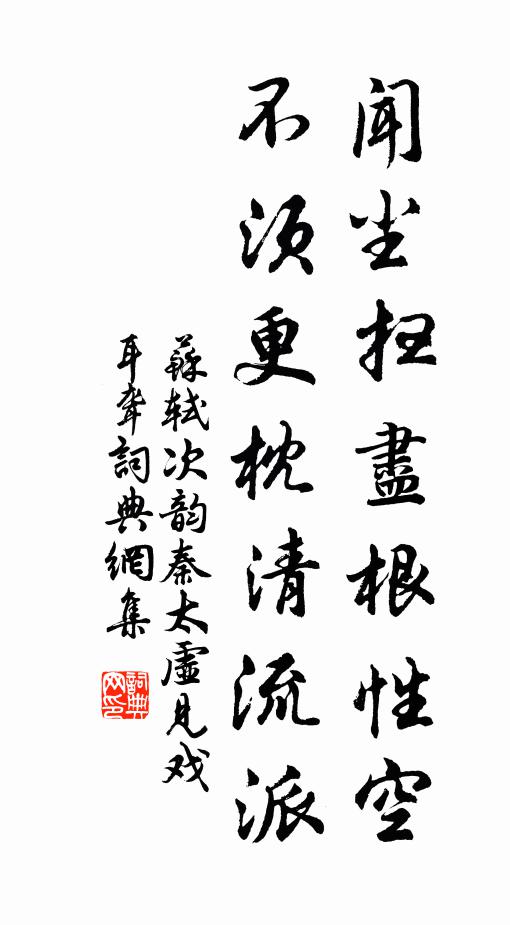 闻尘扫盡根性空
不须更枕清流派
蘇轼次韵秦太虛見戏
耳聋詞典網集
詞典网印